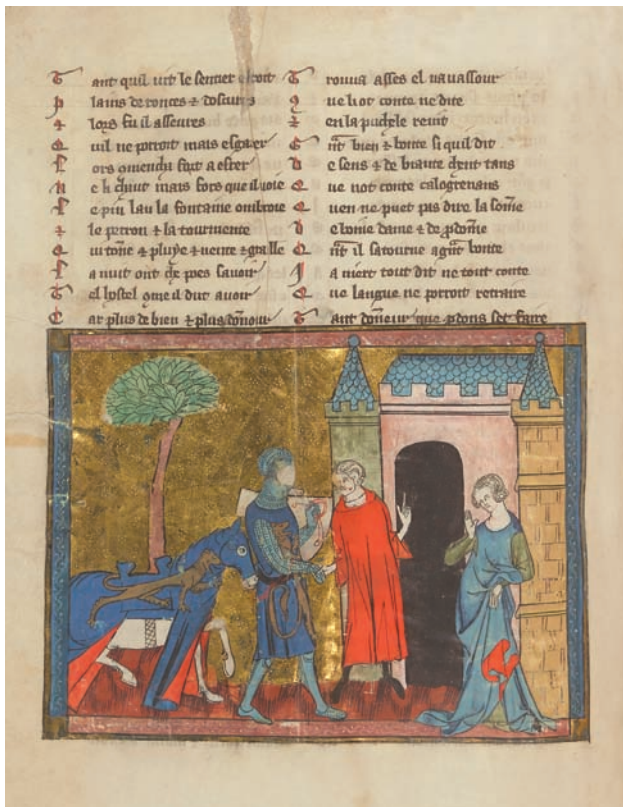 Tant quil vit le sentier estroit
Plains de ronces & doscurs
& lors fu il asseures
Quil ne porroit mais esgarer
Lors fort a ester
Ne li chaut mais fors que il voie
Le pin la fontaine ombroie
& le perron & la tourmente
Qui tone & pluye & vente & gralle
La nuit ont che poes savoir
Tel hostel que il dut avoir
Car plus de bien & plus donour
Trouva asses el vavassour
Que li ot conte ne dite
& en la puchele revit
Gnt bien & bonte si quil dit
De sens & de biaute chent tans
Que not conte calogrenans
Quen ne puet pas dire la some
De bonne dame & de pdome
Qnt il satourne a gnt bonte
Ja niert tout dit ne tout conte
Que langue ne porroit retraire
Tant doneur que pdons set faire